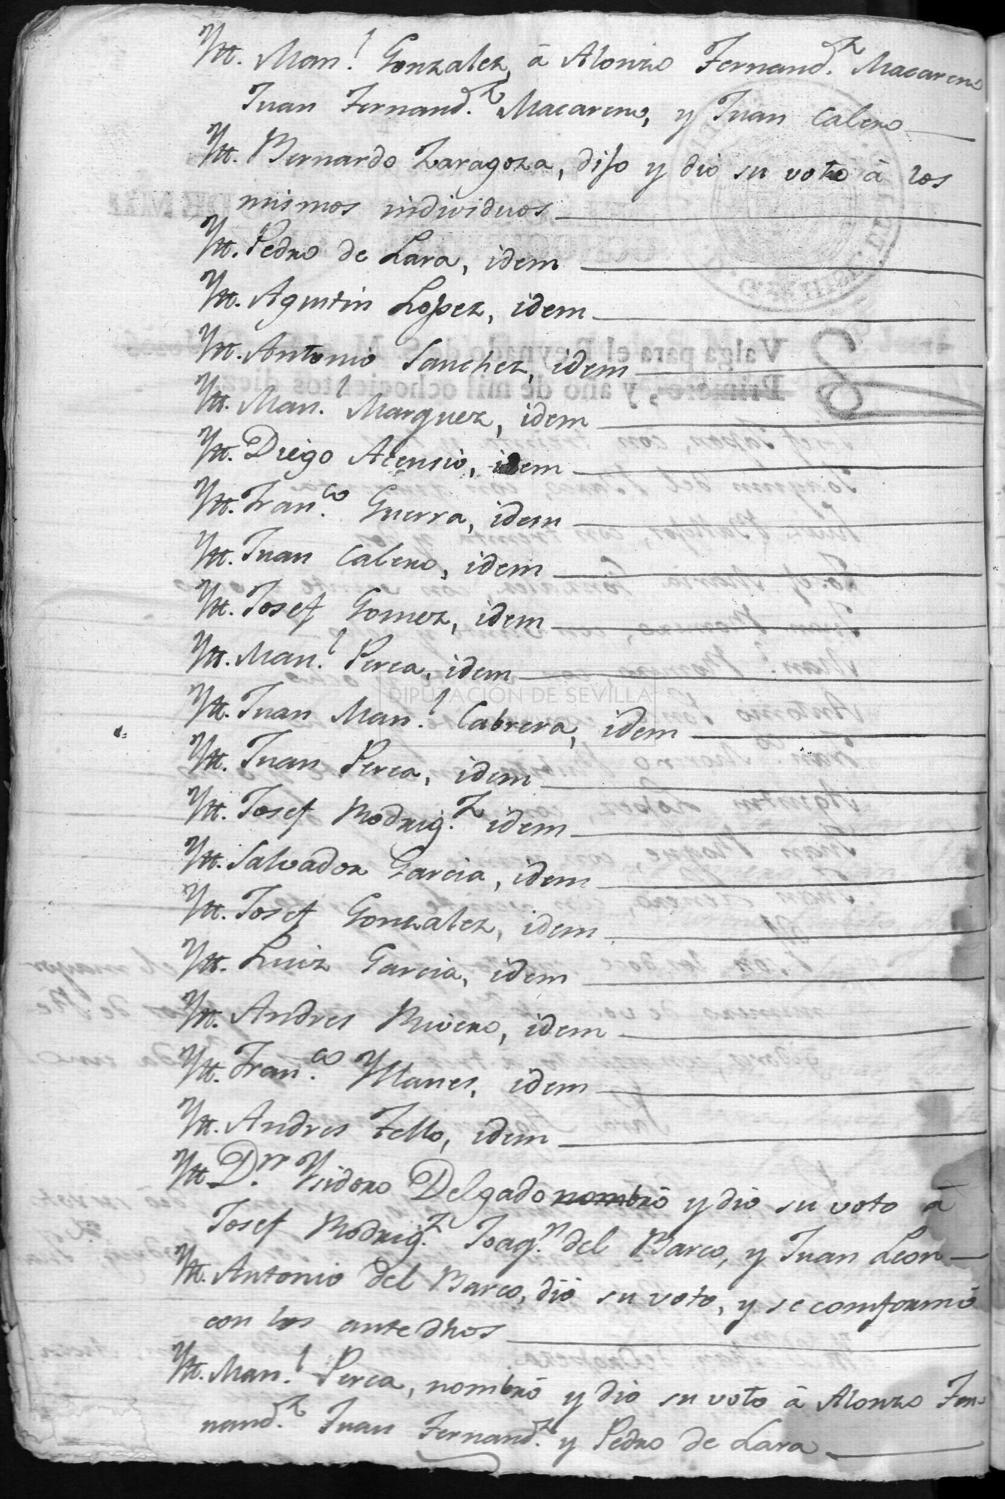 Ytt. Man.l Gonzalez, á Alonzo Fernand.z Macareno
Juan Fernand.z Macareno, y Juan Calero
Ytt. Bernardo Zaragoza, dijo y dió su voto á los
mismos individuos
Ytt. Pedro de Lara, idem
Ytt. Agustin Lopez, idem
Ytt. Antonio Sanchez, idem
Ytt. Man.l Marquez, idem
Ytt. Diego Atensio, idem
Ytt. Fran.co Guerra, idem
Ytt. Juan Calero, idem
Ytt. Josef Gomez, idem
Ytt. Man.l Perea, idem
DIPUTACIÓN DE SEVILLA
Ytt. Juan Man.l Cabrera, idem
Ytt. Juan Perea, idem
Ytt. Josef Rodrig.z idem
Ytt. Salvador Garcia, idem
Ytt. Josef Gonzalez, idem
Ytt. Luiz Garcia, idem
Ytt. Andres Rivero, idem
Ytt. Fran.co Yllanes, idem
Ytt. Andres Tello, idem
Ytt. D.n Ysidoro Delgado nombró y dió su voto á
Josef Rodrig.z Joaq.n del Barco, y Juan Leon
Ytt. Antonio del Barco, dió su voto, y se comformó
con los antedhos
Ytt. Man.l Perea, nombró y dió su voto á Alonzo Fer-
nand.z Juan Fernand.z y Pedro de Lara